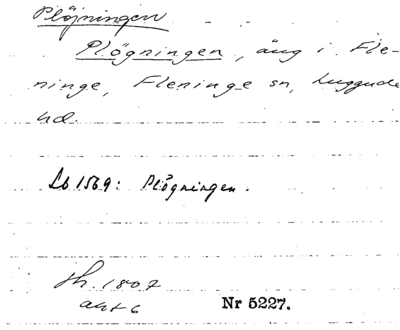 Plöjningen
Plögningen, äng i Fle-
ninge, Fleninge sn, Luggude
hd.
Lb 1569: Plögningen.
sh. 1807
akt 6
Nr 5227.